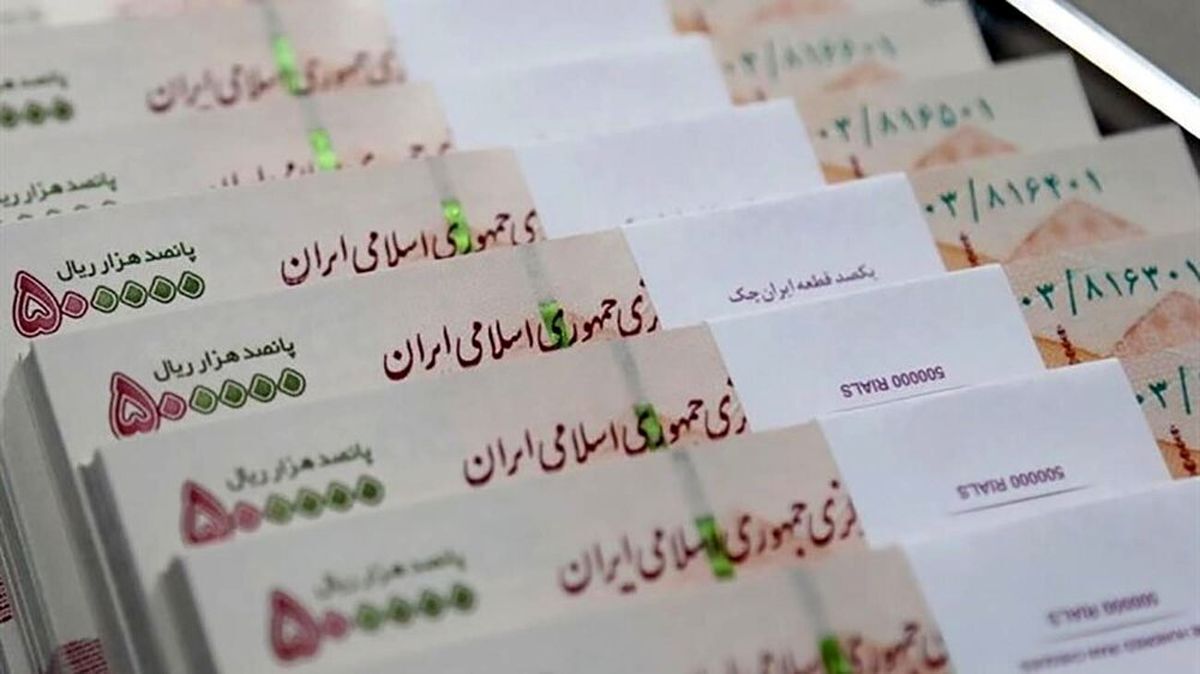 ۰۳/۸۱۶۶۰۱
جمهوری اسلامی ایران
پانصد هزار
۰۳/۸۱۶۵۰۱
پانصد هزار ریال
۰۳/۸۱۶۴۰۱
جمهوری اسلامی ایران
پانصد هزار ریال
۵۰۰۰۰۰
۰۳/۸۱۶۳۰۱
یکصد قطعه ایران چک
جمهوری اسلامی ایران
پانصد هزار ریال
۵۰۰۰۰۰
500000 RIALS
جمهوری اسلامی ایران
پانصد هزار ریال
۵۰۰۰۰۰
500000 RIALS
جمهوری اسلامی ایران
پانصد هزار ریال
۵۰۰۰۰۰
500000 RIALS
HUNDRED IRAN CHEQUES